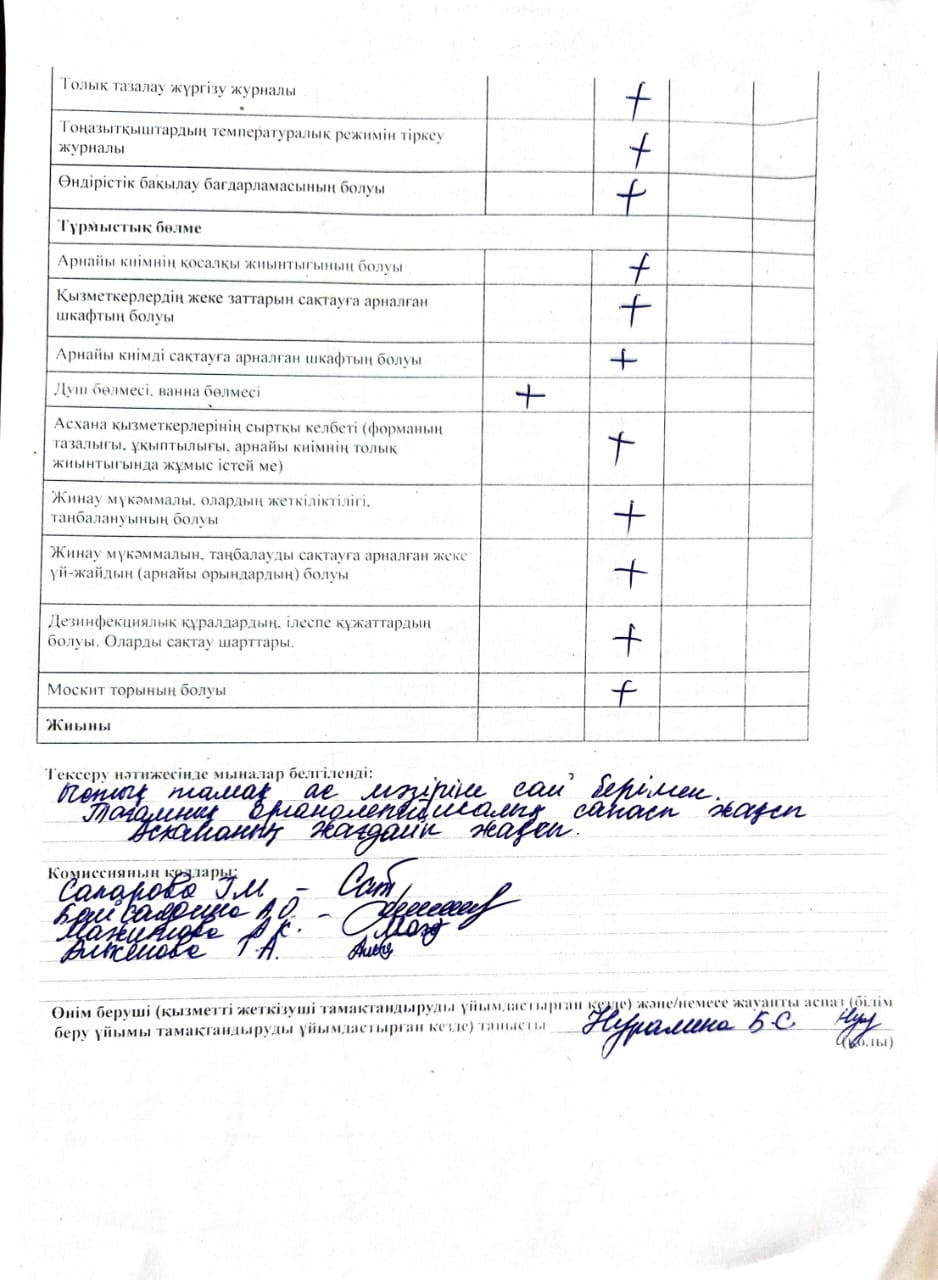 Толық тазалау жүргізу журналы +
Тоңазытқыштардың температуралық режимін тіркеу
журналы +
Өндірістік бақылау бағдарламасының болуы +
Тұрмыстық бөлме
Арнайы киімнің қосалқы жиынтығының болуы +
Қызметкерлердің жеке заттарын сақтауға арналған
шкафтың болуы +
Арнайы киімді сақтауға арналған шкафтың болуы +
Душ бөлмесі, ванна бөлмесі +
Асхана қызметкерлерінің сыртқы келбеті (форманың
тазалығы, ұқыптылығы, арнайы киімнің толық +
жиынтығында жұмыс істей ме)
Жинау мүкәммалы, олардың жеткіліктілігі,
таңбалануының болуы +
Жинау мүкәммалын, таңбалауды сақтауға арналған жеке
үй-жайдың (арнайы орындардың) болуы +
Дезинфекциялық құралдардың, ілеспе құжаттардың
болуы. Оларды сақтау шарттары. +
Москит торының болуы +
Жиыны
Тексеру нәтижесінде мыналар белгіленді:
Ыстық тамақ ас мәзіріне сай берілген.
Тағамның органолептикалық сапасы жақсы
Асхананың жағдайы жақсы.
Комиссияның қолдары:
Г.М. –
А.О. –
Мажитова А.К.
Г.А.
Өнім беруші (қызметті жеткізуші тамақтандыруды ұйымдастырған кезде) және/немесе жауапты аспаз (білім
беру ұйымы тамақтандыруды ұйымдастырған кезде) танысты Нурамина Б.С.
(қолы)